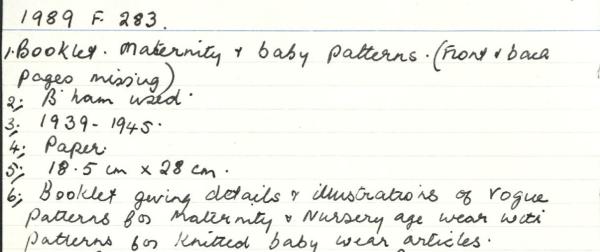 1989 F. 283.
1. Booklet. Maternity & baby patterns. (Front & back
pages missing)
2; B'ham used.
3; 1939-1945.
4; Paper.
5; 18.5 cm x 28 cm.
6; Booklet giving details & illustrations of Vogue
Patterns for Maternity & Nursery age wear with
patterns for Knitted baby wear articles.